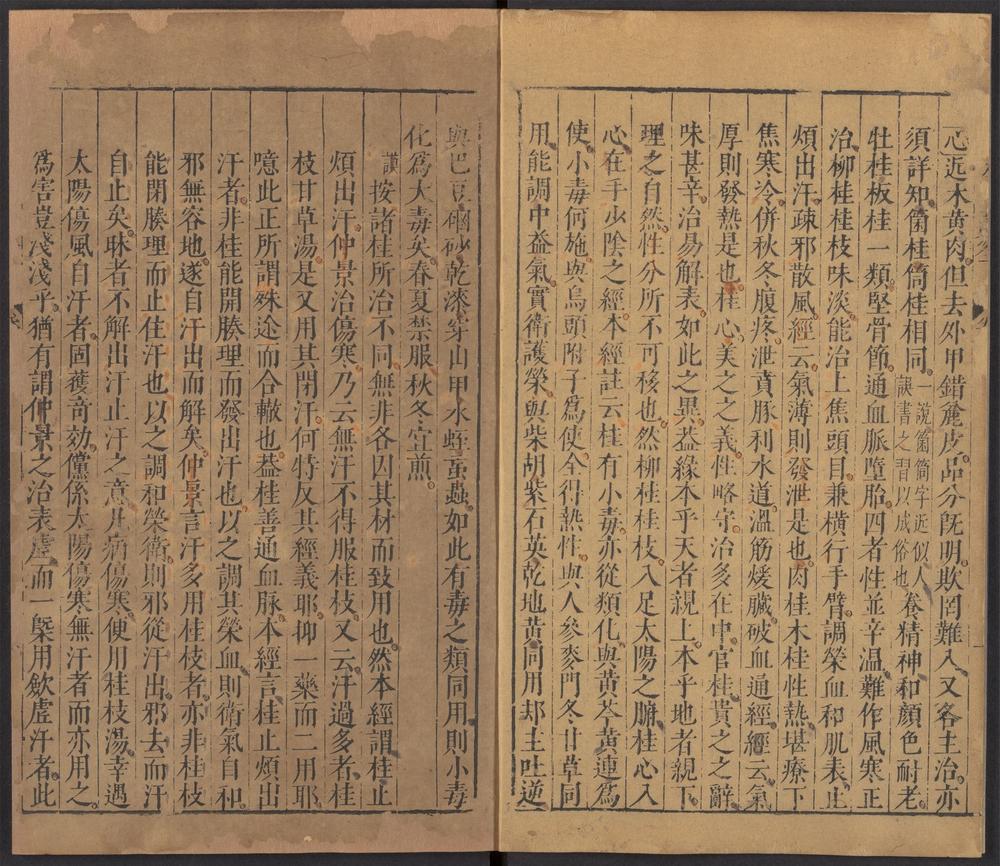 心近木黃肉但去外甲錯麄皮品分既明欺罔難入又各主治亦
須詳知箘桂筒桂相同一說箘筒字近似人誤書之習以成俗也養精神和顏色耐老
牡桂板桂一類堅骨節通血脈墮胎四者性並辛溫難作風寒正
治柳桂桂枝味淡能治上焦頭目兼橫行手臂調榮血和肌表止
煩出汗踈邪散風經云氣薄則發泄是也肉桂木桂性熱堪療下
焦寒冷併秋冬腹疼泄賁豚利水道溫筋煖臟破血通經經云氣
厚則發熱是也桂心美之之義性略守治多在中官桂貴之之辭
味甚辛治易解表如此之異葢緣本乎天者親上本乎地者親下
理之自然性分所不可移也然柳桂桂枝入足太陽之腑桂心入
心在手少陰之經本經註云桂有小毒亦從類化與黃芩黃連為
使小毒何施與烏頭附子為使全得熱性與人參麥門冬甘草同
用能調中益氣實衛護榮與柴胡紫石英乾地黃同用却主吐逆
與巴豆硇砂乾漆穿山甲水蛭䖟蟲如此有毒之類同用則小毒
化為大毒矣春夏禁服秋冬宜煎
謹按諸桂所治不同無非各因其材而致用也然本經謂桂止
煩出汗仲景治傷寒乃云無汗不得服桂枝又云汗過多者桂
枝甘草湯是又用其閉汗何特反其經義耶抑一藥而二用耶
噫此正所謂殊途而合轍也葢桂善通血脉本經言桂止煩出
汗者非桂能開腠理而發出汗也以之調其榮血則衛氣自和
邪無容地遂自汗出而解矣仲景言汗多用桂枝者亦非桂枝
能閉腠理而止住汗也以之調和榮衛則邪從汗出邪去而汗
自止矣昧者不解出汗止汗之意凡病傷寒便用桂枝湯幸遇
太陽傷風自汗者固獲奇効儻係太陽傷寒無汗者而亦用之
為害豈淺淺乎猶有謂仲景之治表虛而一槩用歛虛汗者此